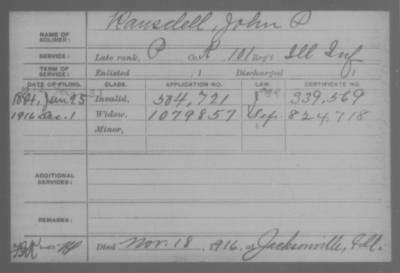 NAME OF SOLDIER: Ransdell, John P
SERVICE: Late rank, P Co. 101 Reg't Ill Inf.
TERM OF SERVICE: Enlisted , 1 Discharged , 1
DATE OF FILING. CLASS. APPLICATION NO. LAW. CERTIFICATE NO.
1884, Jan. 25 Invalid, 504,721 339,569
1916 Dec. 1 Widow, 1079857 Sep. 824,718
Minor,
ADDITIONAL SERVICES:
REMARKS:
Died Nov. 18, 1916, at Jacksonville, Ill.